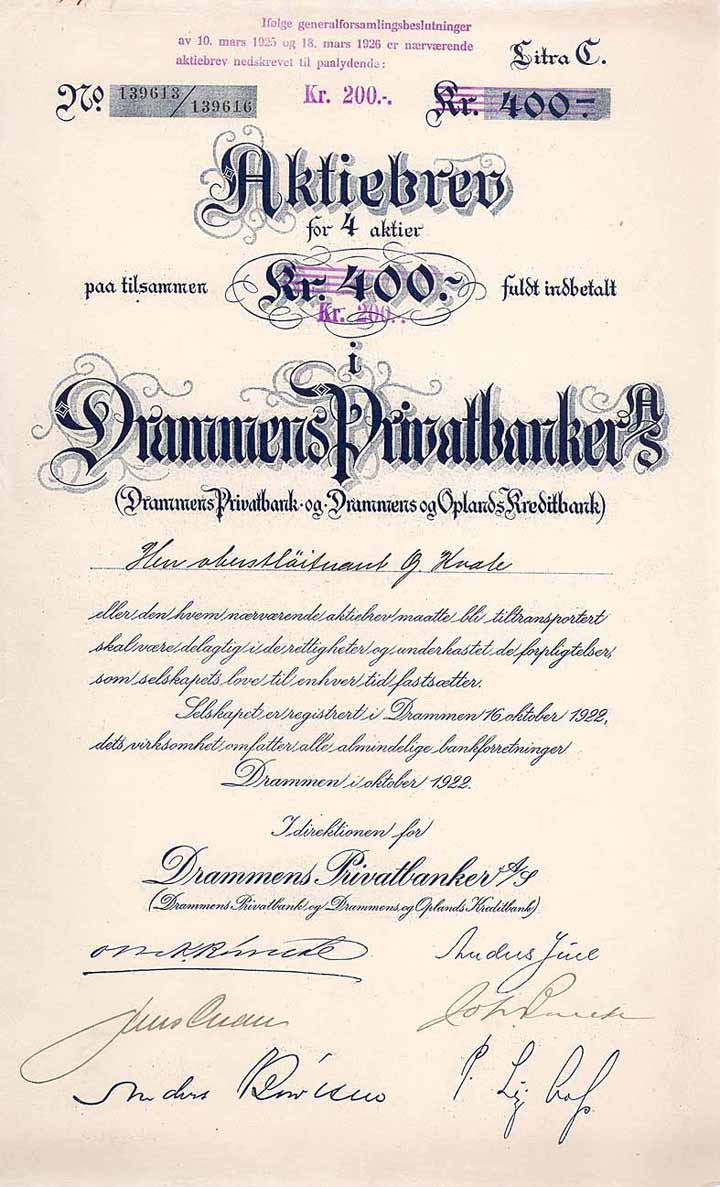 Ifølge generalforsamlingsbeslutninger
av 10. mars 1925 og 18. mars 1926 er nærværende
aktiebrev nedskrevet til paalydende:
Litra C.
No 139613/139616 Kr. 200.-. Kr. 400=
Aktiebrev
for 4 aktier
paa tilsammen Kr. 400.- fuldt indbetalt
Kr. 200.-.
i
Drammens Privatbanker A/S
(Drammens Privatbank og Drammens og Oplands Kreditbank)
Herr oberstløitnant O. Kvale
eller den hvem nærværende aktiebrev maatte bli tiltransportert
skal være delagtig i de rettigheter og underkastet de forpligtelser,
som selskapets love til enhver tid fastsætter.
Selskapet er registrert i Drammen 16. oktober 1922,
dets virksomhet omfatter alle almindelige bankforretninger
Drammen i oktober 1922.
I direktionen for
Drammens Privatbanker A/S
(Drammens Privatbank og Drammens og Oplands Kreditbank)
Anders Juel
Anders